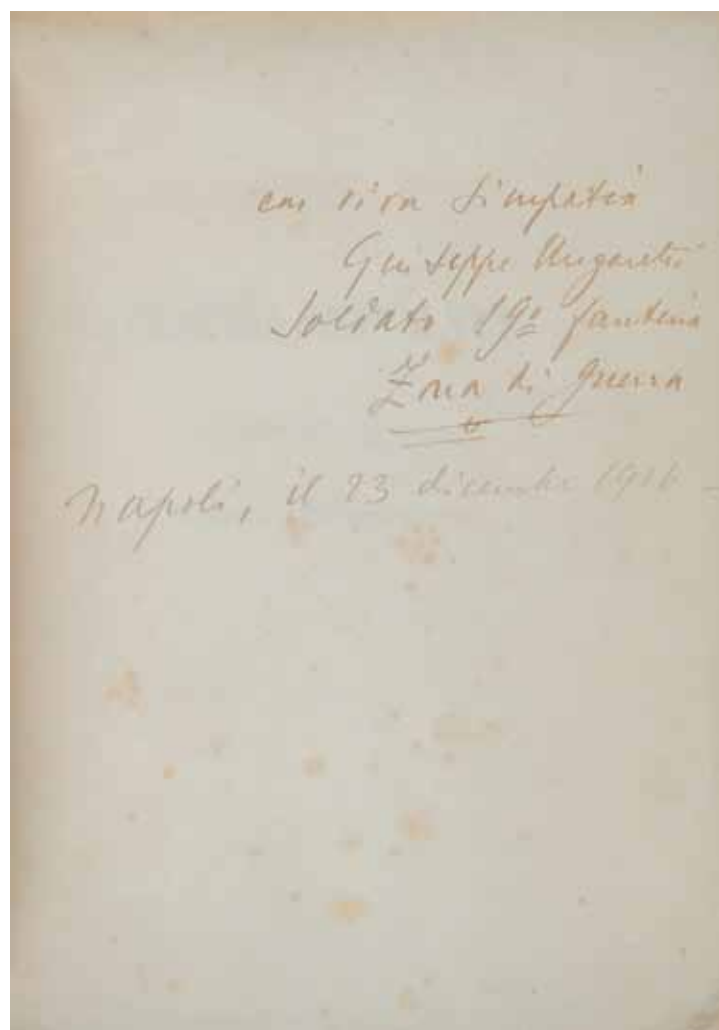 con viva simpatia
Giuseppe Ungaretti
Soldato 19º fanteria
Zona di guerra
Napoli, il 23 dicembre 1916 -